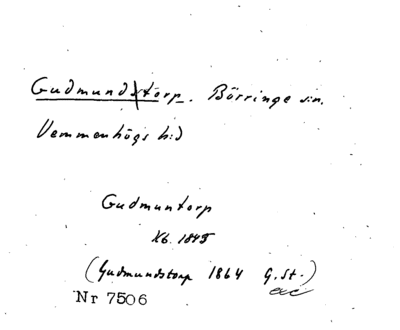 Gudmundstorp. Börringe sn.
Vemmenhögs hd
Gudmuntorp
Kb. 1845
(Gudmundstorp 1864 G. St.)
Nr 7506